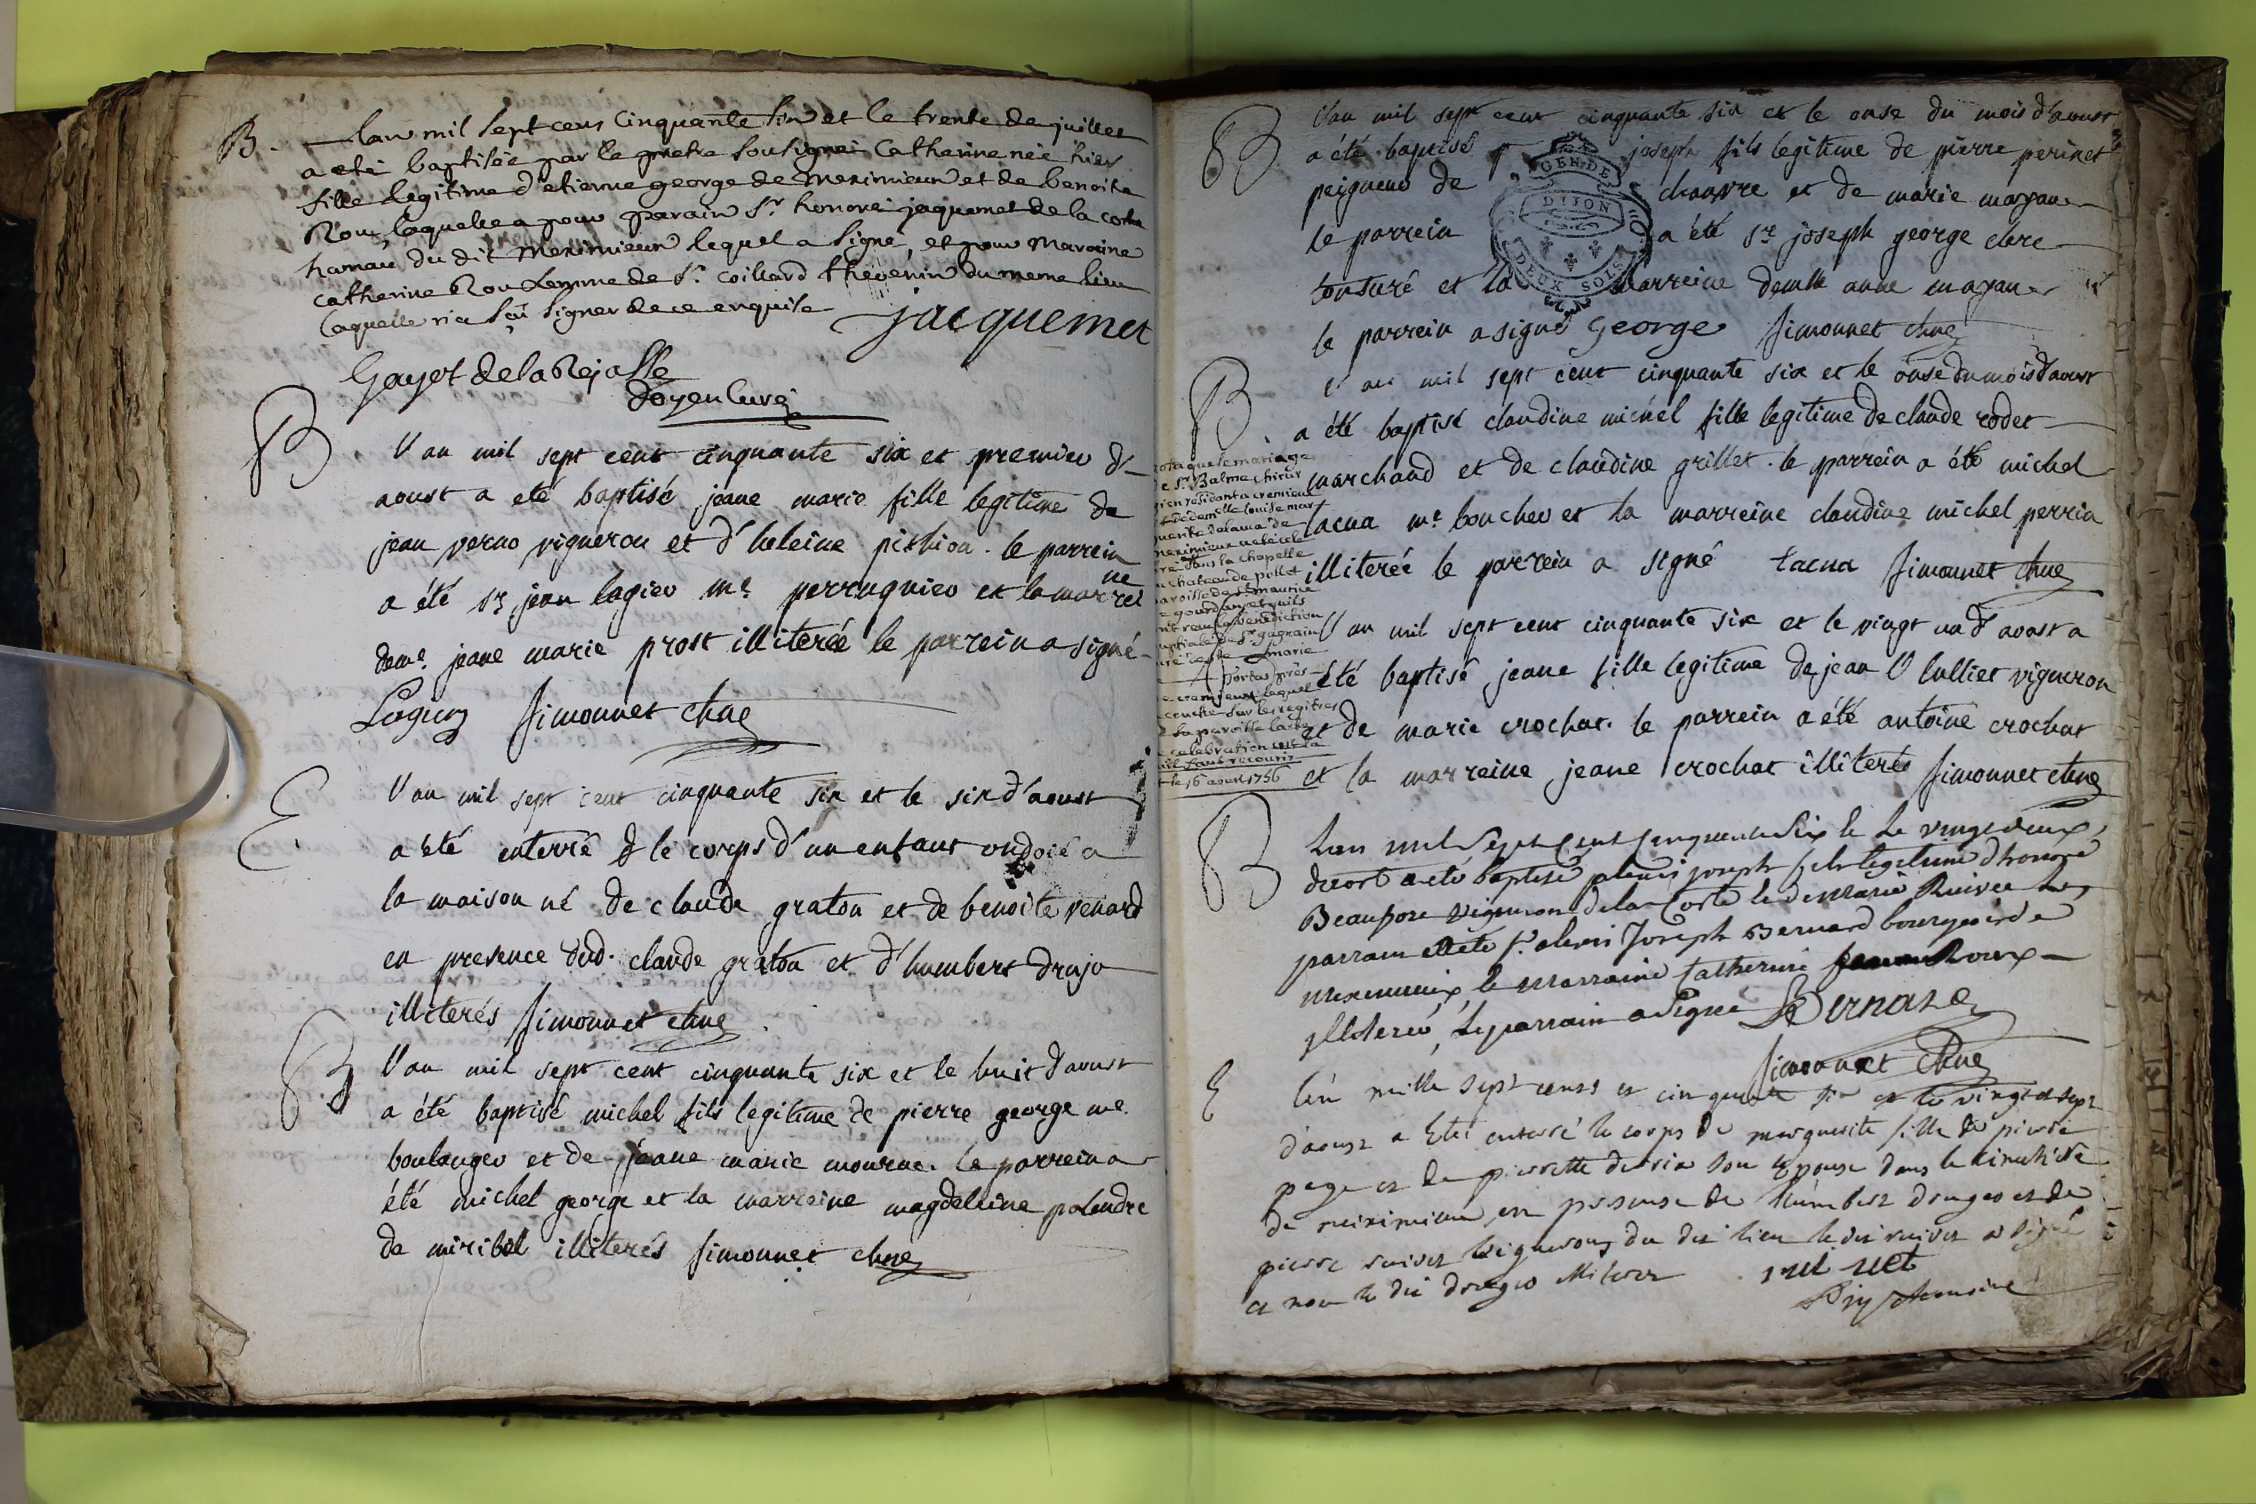 B.
lan mil sept cens Cinquante six et le trente de juillet
a eté baptisée par le pretre sousigné Catherine née hier
fille legitime d'etienne george de meximieux et de benoite
Roux, laquelle a pour parain Sr. honoré jaquemet de la coste
hamau du dit meximieux lequel a signé, et pour Maraine
catherine Roux femme de Sr. coillard thevenin du meme lieu
laquelle n'a sçu signer de ce enquise
jacquemet
Gayet de la Rejasse
Doyen Curé
B
l'an mil sept cent cinquante six et premier d'
aoust a eté baptisé jeane marie fille legitime de
jean verno vigneron et d'heleine pithion. le parrein
a été sr jean lagier me. perruquier et la marrei
ne
deme. jeane marie prost illiterée le parrein a signé
Lagier simonnet chne
E.
l'an mil sept cent cinquante six et le six d'aoust
a été enterré le corps d'un enfant ondoié a
la maison né de claude graton et de benoite renard
en presence dud. claude graton et d'humbert drujo
illiterés simonnet chne
B
l'an mil sept cent cinquante six et le huit d'aoust
a été baptisé michel fils legitime de pierre george me.
boulanger et de jeane marie mourne. le parrein a
été michel george et la marreine magdeleine palendre
de miribel illiterés simonnet chne
B
l'an mil sept cent cinquante six et le onse du mois d'aoust
a été baptisé joseph fils legitime de pierre perinet
peigneur de chanvre et de marie mayan
le parrein a été sr joseph george clerc
tonsuré et la marreine demlle anne mayan
le parrein a signé George simonnet chne
GEN. DE
DIJON
DEUX SOLS
B.
l'an mil sept cent cinquante six et le onse du mois d'aoust
a été baptisé claudine michel fille legitime de claude rodet
marchand et de claudine grillet. le parrein a été michel
tacna me boucher et la marreine claudine michel perrin
illiterée le parrein a signé tacna simonnet chne
nota que le mariage
de Sr. Balme chirur
gien residant a cremieu
et de demlle louise mar
meximieux a été cele
bré dans la chapelle
du chateau de pollet
paroisse de St maurice
de gourdans et qu'ils
ont reçu la benediction
nuptiale de Sr.
le 16 aoust 1756
l'an mil sept cent cinquante six et le vingt un d'aoust a
été baptisé jeane fille legitime de jean l'hullier vigneron
et de marie crochat. le parrein a été antoine crochat
et la marreine jeane crochat illiterés simonnet chne
B
Lan mil sept cent cinquante six le le vingt deux
daost a eté baptisé alexis joseph fils legitime d'honoré
Beaupere vigneron de la Coste le de Marie Ruivet les
parrain a eté sr. alexis Joseph Bernard bourgeois de
meximieux, le marraine Catherine Roux
illiterée, le parrain a signé Bernard
simonnet chne
E
l'an mille sept cents et cinquante six et le vingt et sept
d'aoust a eté enterré le corps de marguerite fille de pierre
page et de pierrette son epouse dans le cimetière
de meximieux en presence de humbert drugeo et de
pierre ruivet vignerons du dit lieu le dit ruivet a signé
et non le dit drugeo illiteré